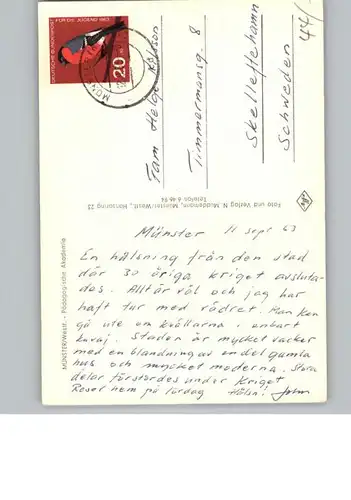 DEUTSCHE BUNDESPOST
FÜR DIE JUGEND 1963
20
44/-
Fam Helge Karlson
Timmermansg. 8
Skelleftehamn
Schweden
Foto und Verlag N. Muddemann, Münster/Westf., Hansaring 23
Telefon 6 46 94
MÜNSTER/Westf. - Pädagogische Akademie
Münster 11 sept 63
En hälsning från den stad
där 30 åriga kriget avsluta-
des. Allt är väl och jag har
haft tur med vädret. Man kan
gå ute om kvällarna i enbart
kavaj. Staden är mycket vacker
med en blandning av en del gamla
hus och mycket moderna. Stora
delar förstördes under kriget
Reser hem på lördag Hälsn! John